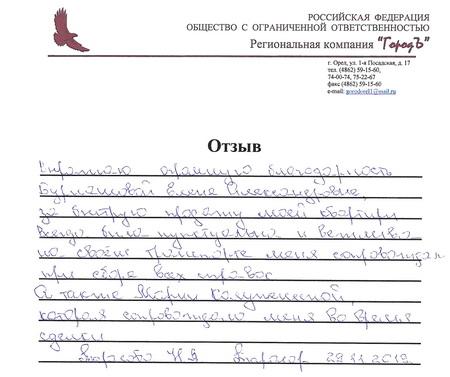 РОССИЙСКАЯ ФЕДЕРАЦИЯ
ОБЩЕСТВО С ОГРАНИЧЕННОЙ ОТВЕТСТВЕННОСТЬЮ
Региональная компания "ГородЪ"
г. Орел, ул. 1-я Посадская, д. 17
тел. (4862) 59-15-60,
74-00-74, 75-22-67
факс (4862) 59-15-60
e-mail: gorodorel1@mail.ru
Отзыв
огромную благодарность
Бурнашовой Елене Александровне,
за быструю продажу моей квартиры
Всегда была пунктуальна и вежлива
на своём транспорте меня сопровождала
при сборе всех справок
А также Марии
которая сопровождала меня во время
сделки
29.11.2019